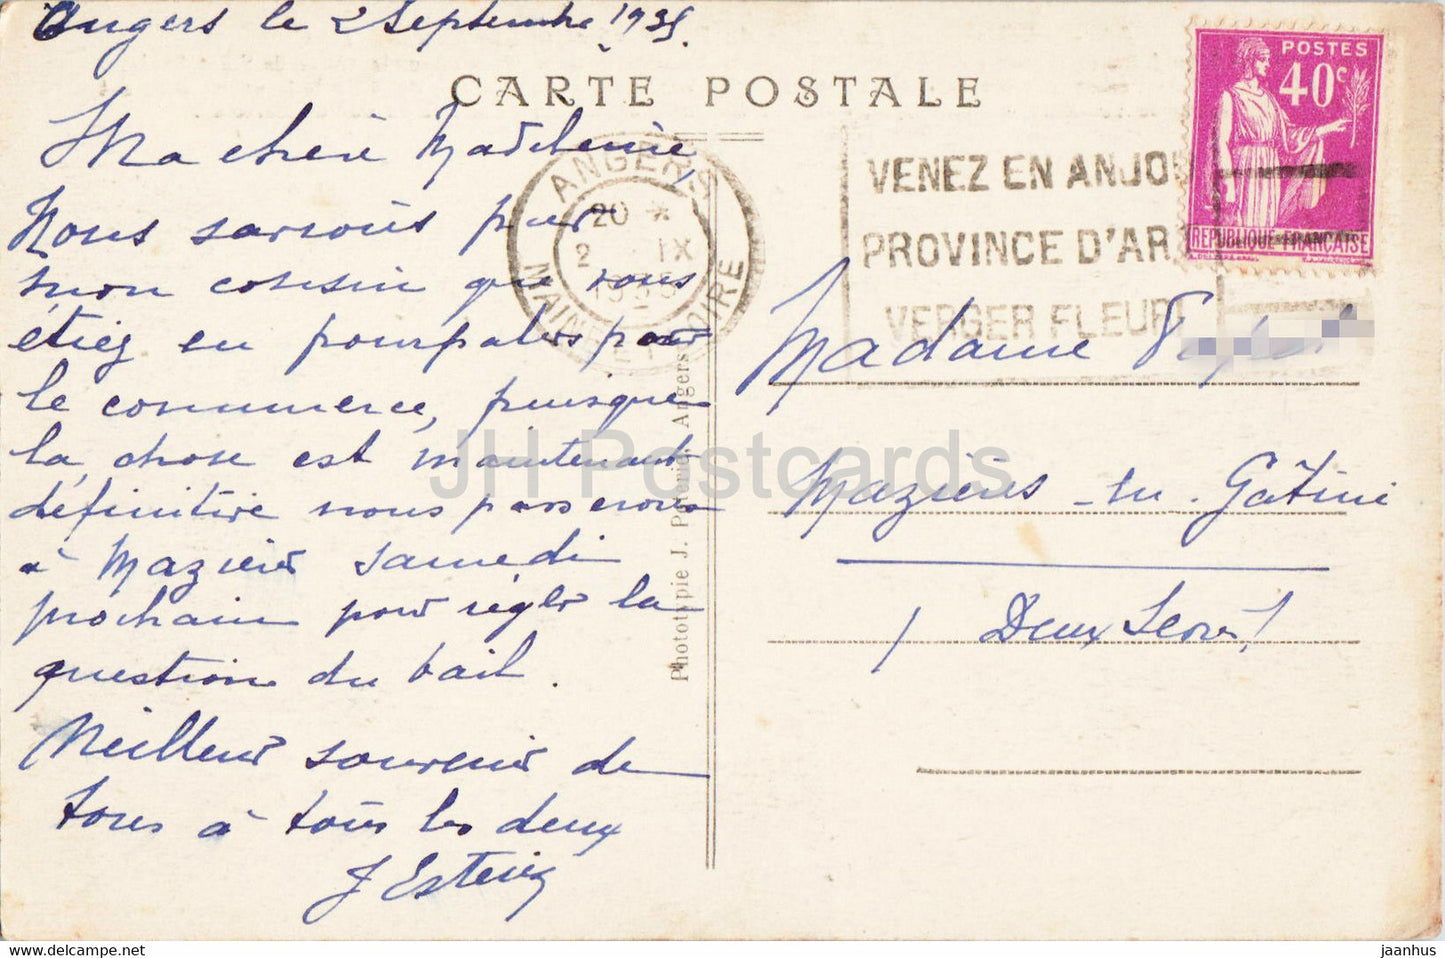 Angers le 2 Septembre 1935.
CARTE POSTALE
Ma chère Madeleine,
Nous savions par
mon cousin que vous
étiez en pourpalers pour
le commerce, puisque
la chose est maintenant
définitive nous passerons
à Mazières samedi
prochain pour régler la
question du bail.
Meilleur souvenir de
tous à tous les deux
J
ANGERS
20 *
2 IX
1935
MAINE ET LOIRE
VENEZ EN ANJOU
PROVINCE D'AR
VERGER FLEURI
POSTES
40c
REPUBLIQUE FRANÇAISE
Madame
Mazières-en-Gâtine
Deux Sèvres
Phototypie J. Angers
JH Postcards
https://jhpostcards.com
jaanhus